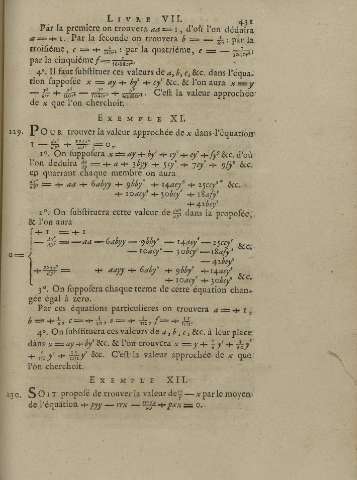 LIVRE VII. 431
Par la premiere on trouvera aa = 1, d'où l'on déduira
a = + 1. Par la seconde on trouvera b = : par la
troisiéme, c = + : par la quatriéme, e = —
par la cinquiéme f =
4°. Il faut substituer ces valeurs de a, b, c, &c. dans l'équa-
tion supposée x = ay + by³ + cy⁵ &c. & l'on aura x = y
&c. C'est la valeur approchée
de x que l'on cherchoit.
EXEMPLE XI.
229. POUR trouver la valeur approchée de x dans l'équation
= 0,
1°. On supposera x = ay + by³ + cy⁵ + ey⁷ + fy⁹ &c. d'où
l'on déduira = + a + 3byy + 5cy⁴ + 7ey⁶ + 9fy⁸ &c.
en quarrant chaque membre on aura
= + aa + 6abyy + 9bby⁴ + 14aey⁶ + 25ccy⁸ &c.
+ 10acy⁴ + 30bcy⁶ + 18afy⁸
+ 42bey⁸
2°. On substituera cette valeur de dans la proposée,
& l'on aura
+ 1 = + 1
= — aa — 6abyy — 9bby⁴ — 14aey⁶ — 25ccy⁸ &c.
— 10acy⁴ — 30bcy⁶ — 18afy⁸
— 42bey⁸
0 =
= aayy + 6aby⁴ + 9bby⁶ + 14aey⁸ &c.
+ 10acy⁶ + 30bcy⁸
3°. On supposera chaque terme de cette équation chan-
gée égal à zero.
Par ces équations particulieres on trouvera a = + 1,
b = + , c = + , e = + , f = +
4°. On substituera ces valeurs de a, b, c, &c. à leur place
dans x = ay + by³ &c. & l'on trouvera x = y +
&c. C'est la valeur approchée de x que
l'on cherchoit.
EXEMPLE XII.
230. SOIT proposé de trouver la valeur de — x par le moyen
de l'équation + pyy — rrx — + pxx = 0.